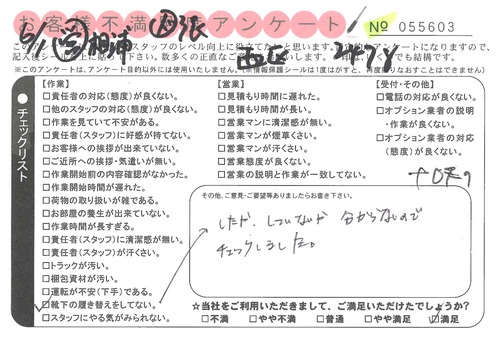 お客様不満足アンケート
No 055603
西区
記入後シール
※このアンケートは、アンケート目的以外には使用いたしません。(※情報保護シールは1度はがすと、再度貼りなおすことはできません)
チェックリスト
【作業】
□責任者の対応(態度)が良くない。
□他のスタッフの対応(態度)が良くない。
□作業を見ていて不安がある。
□責任者(スタッフ)に好感が持てない。
□お客様への挨拶が出来ていない。
□ご近所への挨拶・気遣いが無い。
□作業開始前の内容確認がなかった。
□作業開始時間が遅れた。
□荷物の取り扱いが雑である。
□お部屋の養生が出来ていない。
□作業時間が長すぎる。
□責任者(スタッフ)に清潔感が無い。
□責任者(スタッフ)が汗くさい。
□トラックが汚い。
□梱包資材が汚い。
□運転が不安(下手)である。
□靴下の履き替えをしてない。
□スタッフにやる気がみられない。
【営業】
□見積もり時間に遅れた。
□見積もり時間が長い。
□営業マンに清潔感が無い。
□営業マンが煙草くさい。
□営業マンが汗くさい。
□営業態度が良くない。
□営業の説明と作業が一致してない。
【受付・その他】
□電話の対応が良くない。
□オプション業者の説明・作業が良くない。
□オプション業者の対応(態度)が良くない。
その他、ご意見・ご要望等ありましたらお書き下さい。
したか、していないか 分からないので
チェックしました。
☆当社をご利用いただきまして、ご満足いただけたでしょうか?
□不満 □やや不満 □普通 □やや満足 □満足